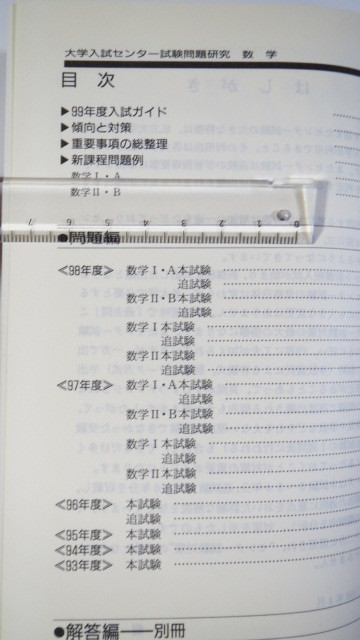 大学入試センター試験問題研究 数 学
目 次
▶99年度入試ガイド
▶傾向と対策
▶重要事項の総整理
▶新課程問題例
数学Ⅰ・A
数学Ⅱ・B
7 6 5 4 3 2 1 0
●問題編
≪98年度≫ 数学Ⅰ・A本試験
追試験
数学Ⅱ・B本試験
追試験
数学Ⅰ本試験
追試験
数学Ⅱ本試験
追試験
≪97年度≫ 数学Ⅰ・A本試験
追試験
数学Ⅱ・B本試験
追試験
数学Ⅰ本試験
追試験
数学Ⅱ本試験
追試験
≪96年度≫ 本試験
追試験
≪95年度≫ 本試験
≪94年度≫ 本試験
≪93年度≫ 本試験
●解答編──別冊